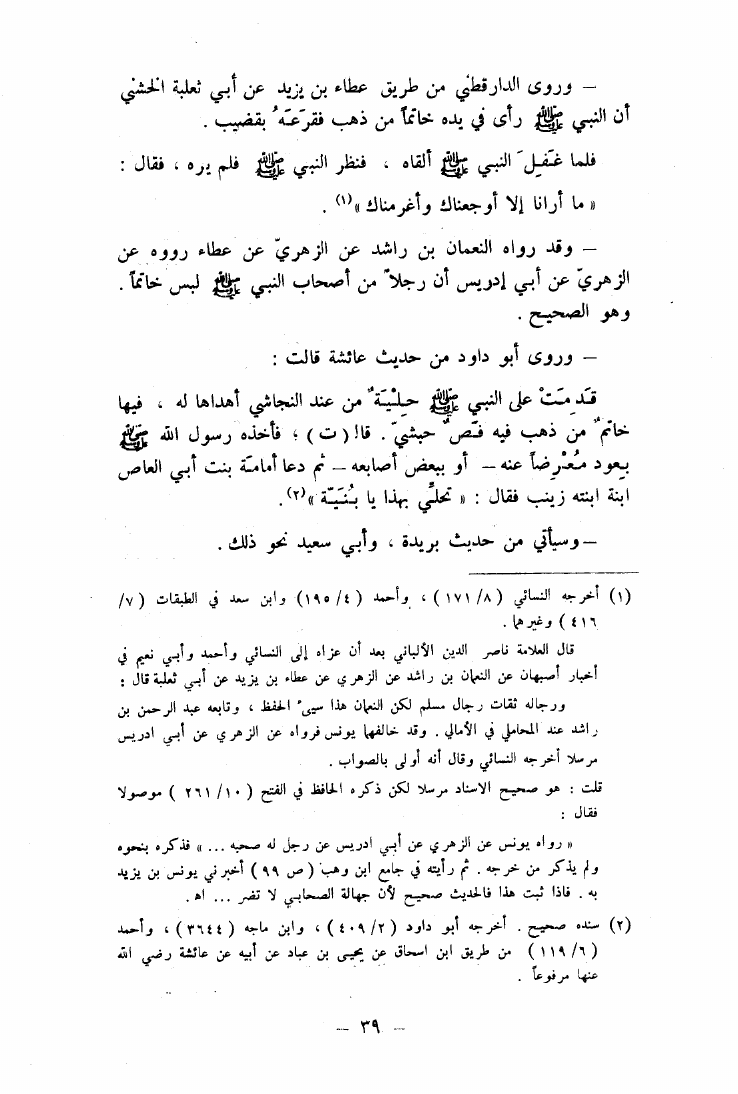 – وروى الدارقطني من طريق عطاء بن يزيد عن أبي ثعلبة الخشني
أن النبي ﷺ رأى في يده خاتماً من ذهب فقرَعَهُ بقضيب .
فلما غَفَلَ النبي ﷺ ألقاه ، فنظر النبي ﷺ فلم يره ، فقال :
« ما أرانا إلا أوجعناك وأغرمناك »(١) .
– وقد رواه النعمان بن راشد عن الزهريّ عن عطاء رووه عن
الزهريّ عن أبي إدريس أن رجلاً من أصحاب النبي ﷺ لبس خاتماً .
وهو الصحيح .
– وروى أبو داود من حديث عائشة قالت :
قَدِمَتْ على النبي ﷺ حِلْيَةٌ من عند النجاشي أهداها له ، فيها
خاتمٌ من ذهب فيه فَصٌ حبشيّ . قا! ( ت ) ؛ فأخذه رسول الله ﷺ
بعود مُعْرِضاً عنه – أو ببعض أصابعه – ثم دعا أمامَة بنت أبي العاص
ابنة ابنته زينب فقال : « تحلّي بهذا يا بُنَيَّة »(٢).
– وسيأتي من حديث بريدة ، وأبي سعيد نحو ذلك .
(١) أخرجه النسائي ( ٨/ ١٧١ ) ، وأحمد ( ٤/ ١٩٥) وابن سعد في الطبقات ( ٧/
٤١٦ ) وغيرها .
قال العلامة ناصر الدين الألباني بعد أن عزاه إلى النسائي وأحمد وأبي نعيم في
أخبار أصبهان عن النعمان بن راشد عن الزهري عن عطاء بن يزيد عن أبي ثعلبة قال :
ورجاله ثقات رجال مسلم لكن النعمان هذا سيىء الحفظ ، وتابعه عبد الرحمن بن
راشد عند المحاملي في الأمالي . وقد خالفهما يونس فرواه عن الزهري عن أبي ادريس
مرسلا أخرجه النسائي وقال أنه أولى بالصواب .
قلت : هو صحيح الاسناد مرسلا لكن ذكره الحافظ في الفتح ( ١٠/ ٢٦١ ) موصولا
فقال :
« رواه يونس عن الزهري عن أبي ادريس عن رجل له صحبه ... » فذكره بنحوه
ولم يذكر من خرجه . ثم رأيته في جامع ابن وهب ( ص ٩٩ ) أخبرني يونس بن يزيد
به . فاذا ثبت هذا فالحديث صحيح لأن جهالة الصحابي لا تضر ... اه .
(٢) سنده صحيح . أخرجه أبو داود ( ٢/ ٤٠٩ ) ، وابن ماجه ( ٣٦٤٤ ) ، وأحمد
( ٦/ ١١٩ ) من طريق ابن اسحاق عن يحيى بن عباد عن أبيه عن عائشة رضي الله
عنها مرفوعاً .
– ٣٩ –